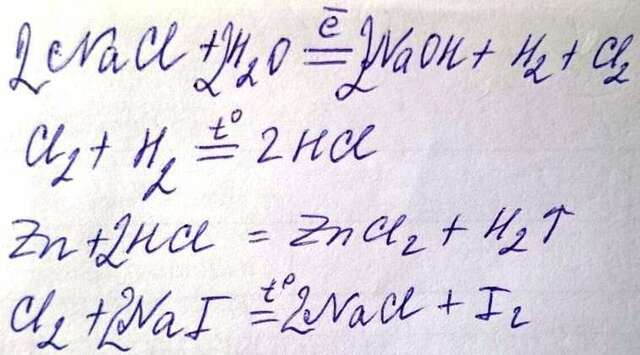 2NaCl + 2H₂O =(ē) 2NaOH + H₂ + Cl₂
Cl₂ + H₂ =(t°) 2HCl
Zn + 2HCl = ZnCl₂ + H₂↑
Cl₂ + 2NaI =(t°) 2NaCl + I₂